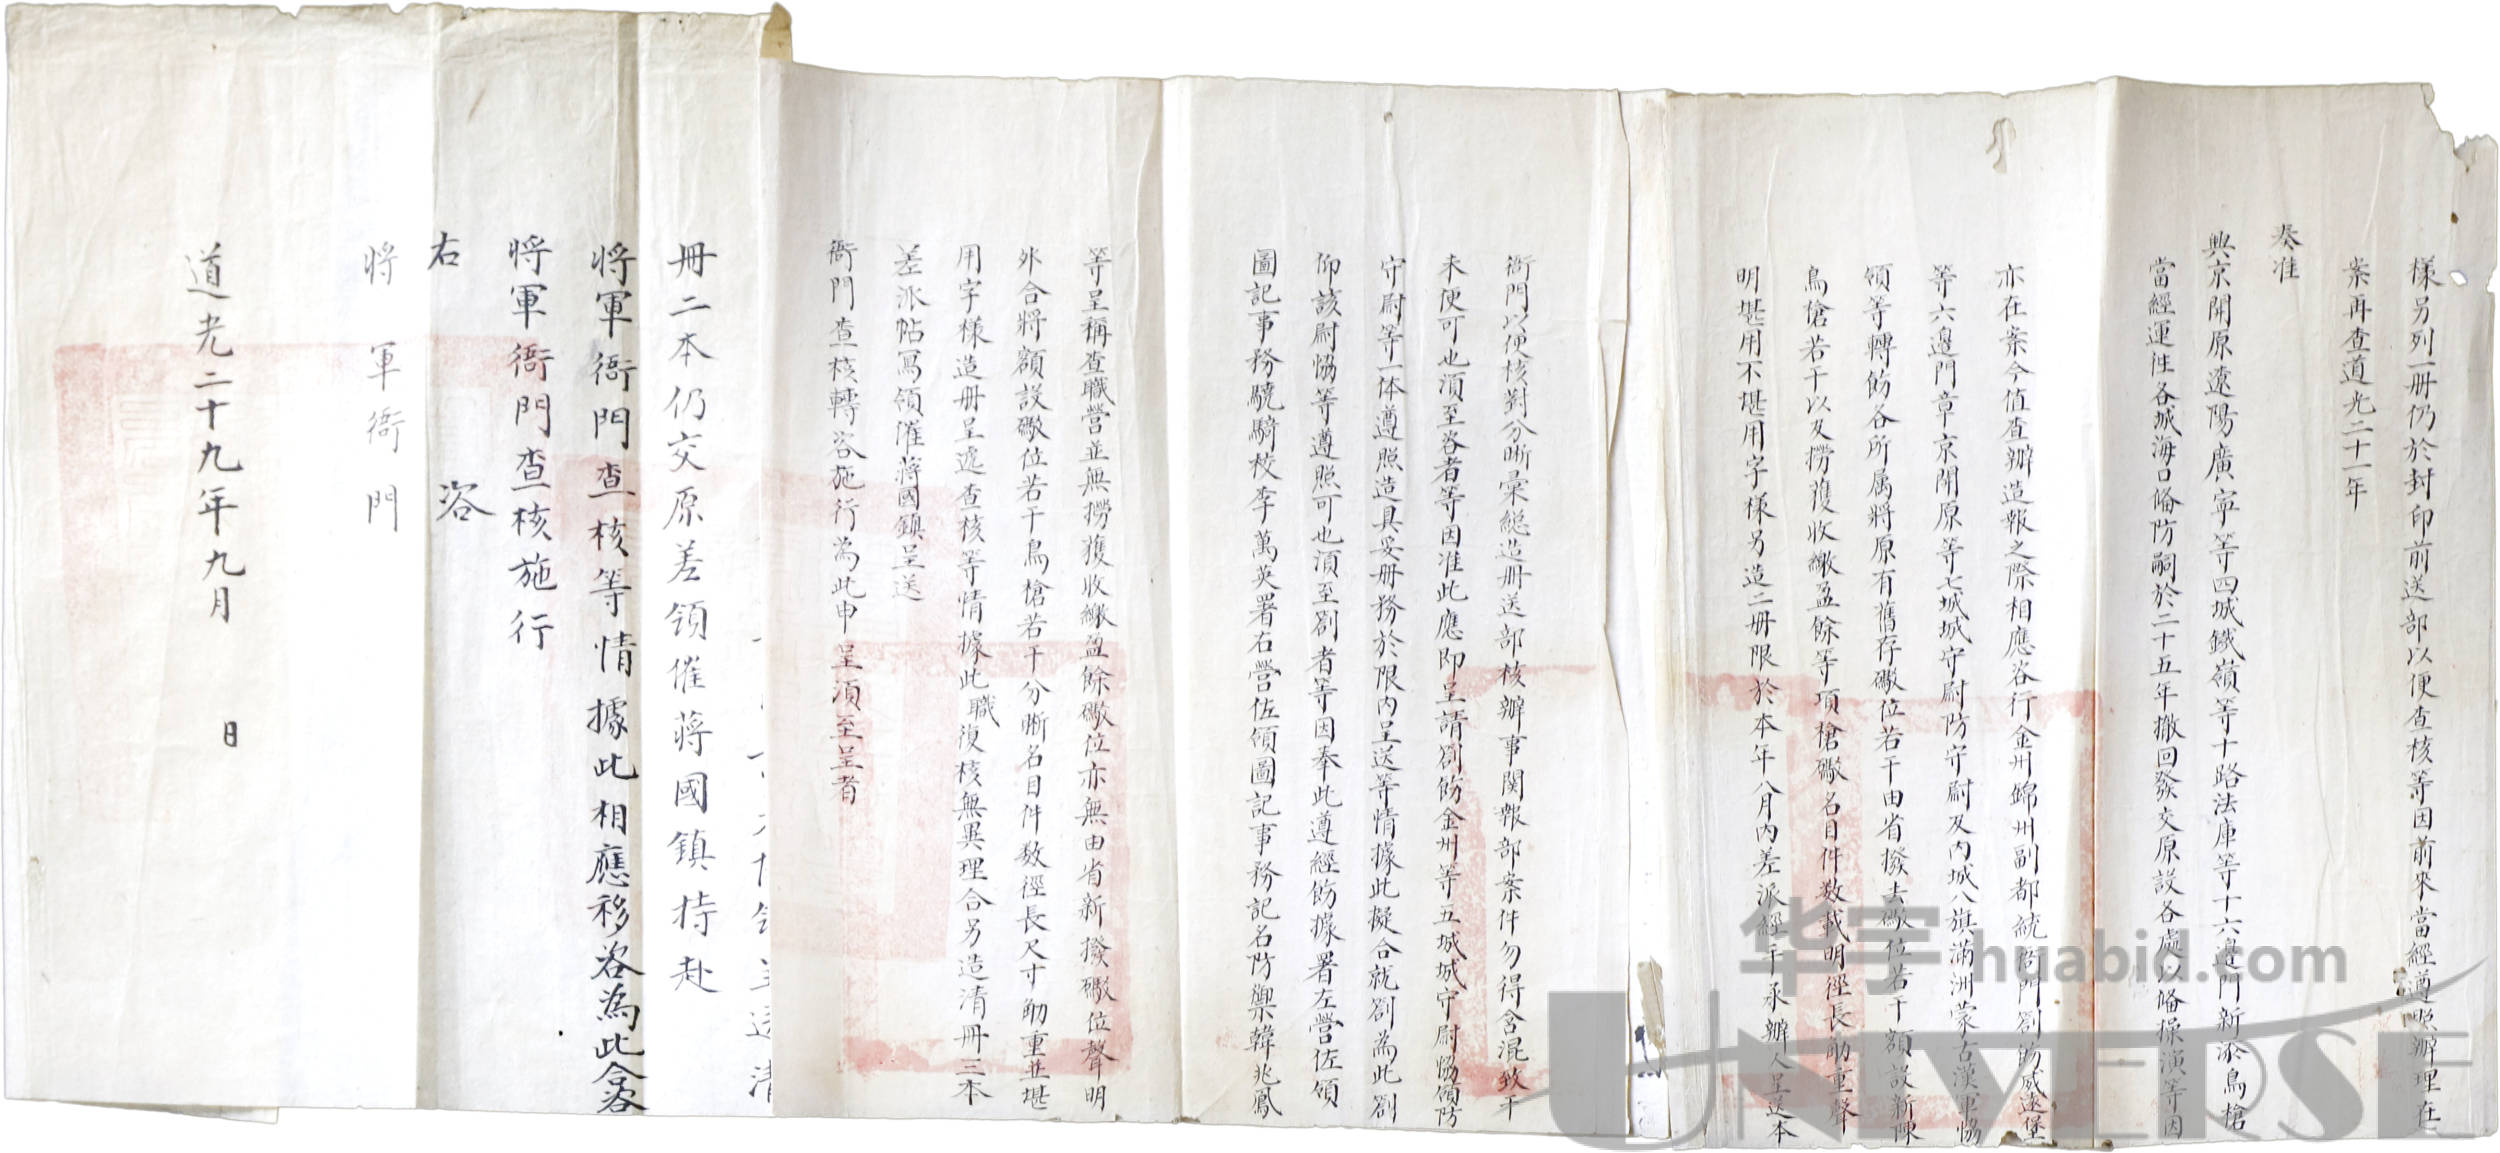 樣另列一册仍於封印前送部以便查核等因前來當經遵照辦理在
案再查道光二十一年
奏准
興京開原遼陽廣寧等四城鐵嶺等十路法庫等十六邊門新添鳥槍
當經運往各城海口俻防嗣於二十五年撤回發交原設各處以俻操演等因
亦在案今值查辦造報之際相應咨行金州錦州副都統衙門劄飭威遠堡
等六邊門章京開原等七城城守尉防守尉及內城八旗滿洲蒙古漢軍協
領等轉飭各所属將原有舊存礮位若干由省撥去礮位若干額設新陳
鳥槍若干以及撈獲收繳盈餘等項槍礮名目件数載明徑長觔重聲
明堪用不堪用字樣另造二册限於本年八月內差派經手承辦人呈送本
衙門以便核對分晰彙總造册送部核辦事関報部案件勿得含混致干
未便可也湏至咨者等因准此應即呈請劄飭金州等五城城守尉協領防
守尉等一体遵照造具妥册務於限內呈送等情據此擬合就劄為此劄
仰該尉協等遵照可也湏至劄者等因奉此遵經飭據署左營佐領
圖記事務驍騎校李萬英署右營佐領圖記事務記名防禦韓兆鳳
等呈稱查職營並無撈獲收繳盈餘礮位亦無由省新撥礮位聲明
外合將額設礮位若干鳥槍若干分晰名目件数徑長尺寸觔重並堪
用字樣造册呈遞查核等情據此職復核無異理合另造清册三本
差派帖寫領催蔣國鎮呈送
衙門查核轉咨施行為此申呈湏至呈者
册二本仍交原差領催蔣國鎮持赴
將軍衙門查核等情據此相應移咨為此合咨
將軍衙門查核施行
右咨
將軍衙門
道光二十九年九月 日
华宇 huabid.com
UNIVERSE